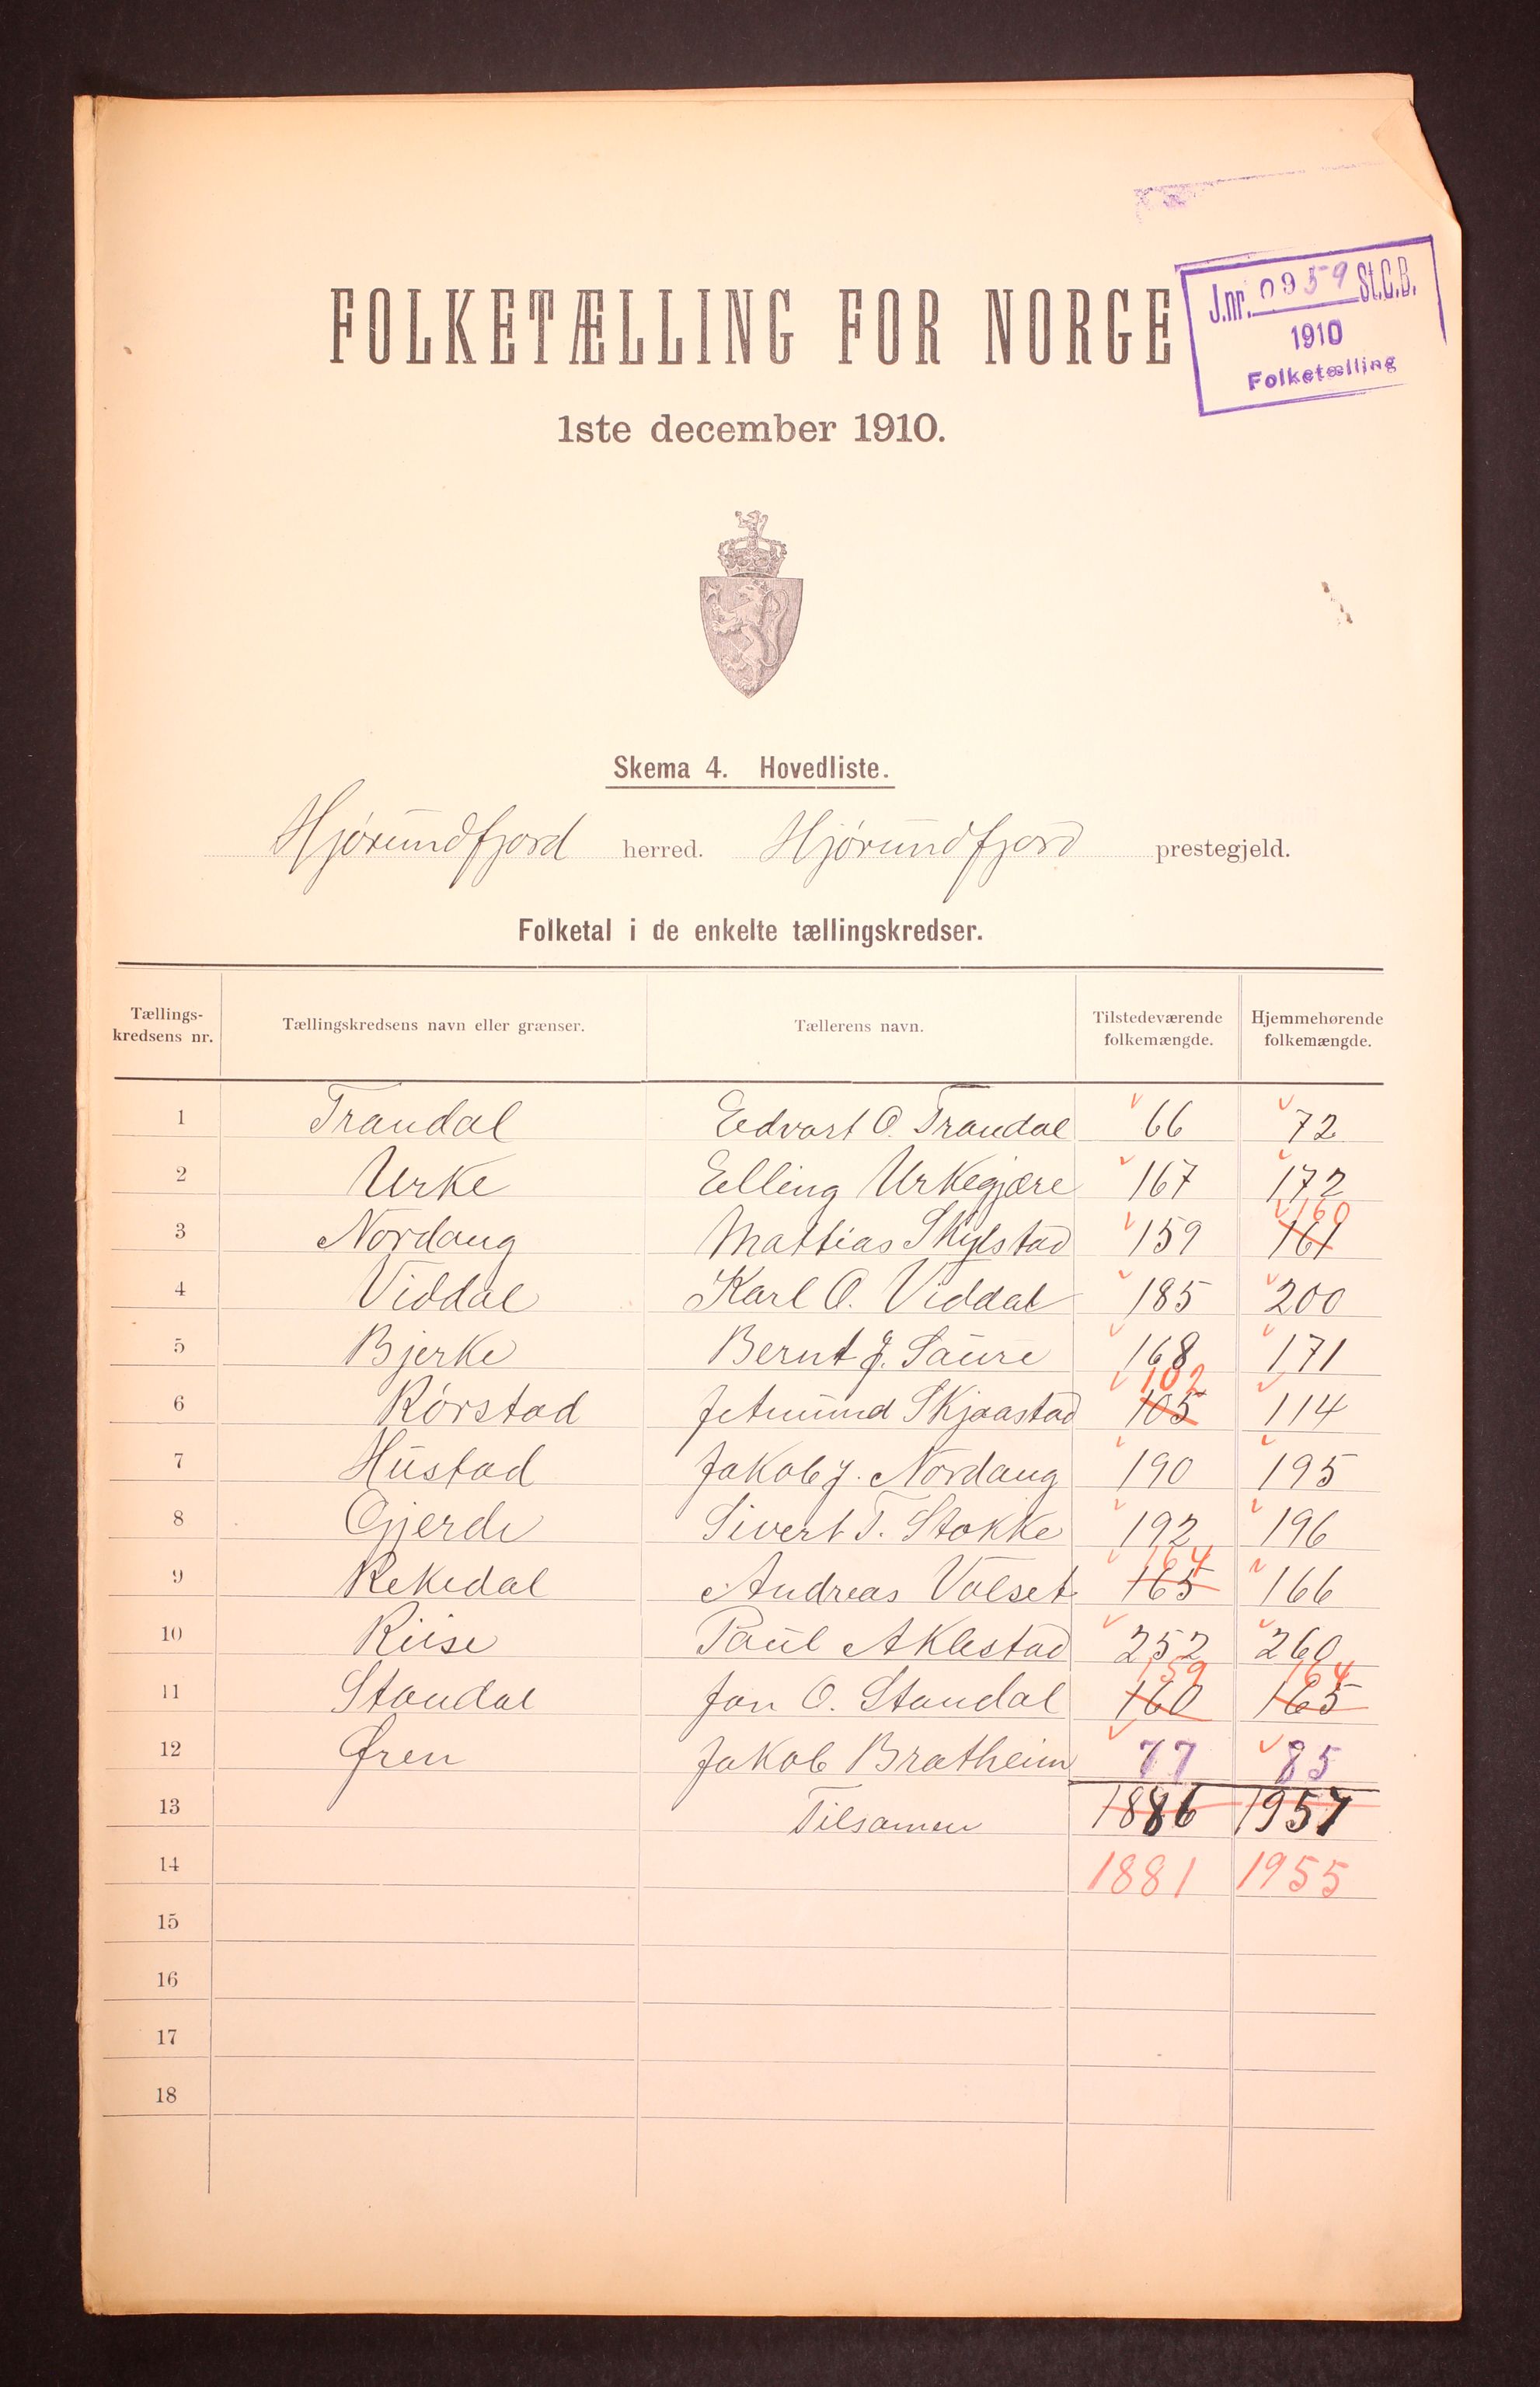 J.nr. 0959 St.C.B.
1910
Folketælling
FOLKETÆLLING FOR NORGE
1ste december 1910.
Skema 4. Hovedliste.
Hjørundfjord herred. Hjørundfjord prestegjeld.
Folketal i de enkelte tællingskredser.
Tællings-kredsens nr. Tællingskredsens navn eller grænser. Tællerens navn. Tilstedeværende folkemængde. Hjemmehørende folkemængde.
1 Trandal Edvart O. Trandal 66 72
2 Urke Elling Urkegjære 167 172
3 Nordang Mattias Skylstad 159 161 160
4 Viddal Karl O. Viddal 185 200
5 Bjerke Bernt J. Saure 168 171
6 Rørstad Jetmund Skjaastad 105 102 114
7 Hustad Jakob J. Nordang 190 195
8 Gjerde Sivert T. Stokke 192 196
9 Rekedal Andreas Valset 165 164 166
10 Riise Paul Aklestad 252 260
11 Standal Jon O. Standal 160 159 165 164
12 Øren Jakob Bratheim 77 85
13 Tilsamen 1886 1957
14 1881 1955
15
16
17
18